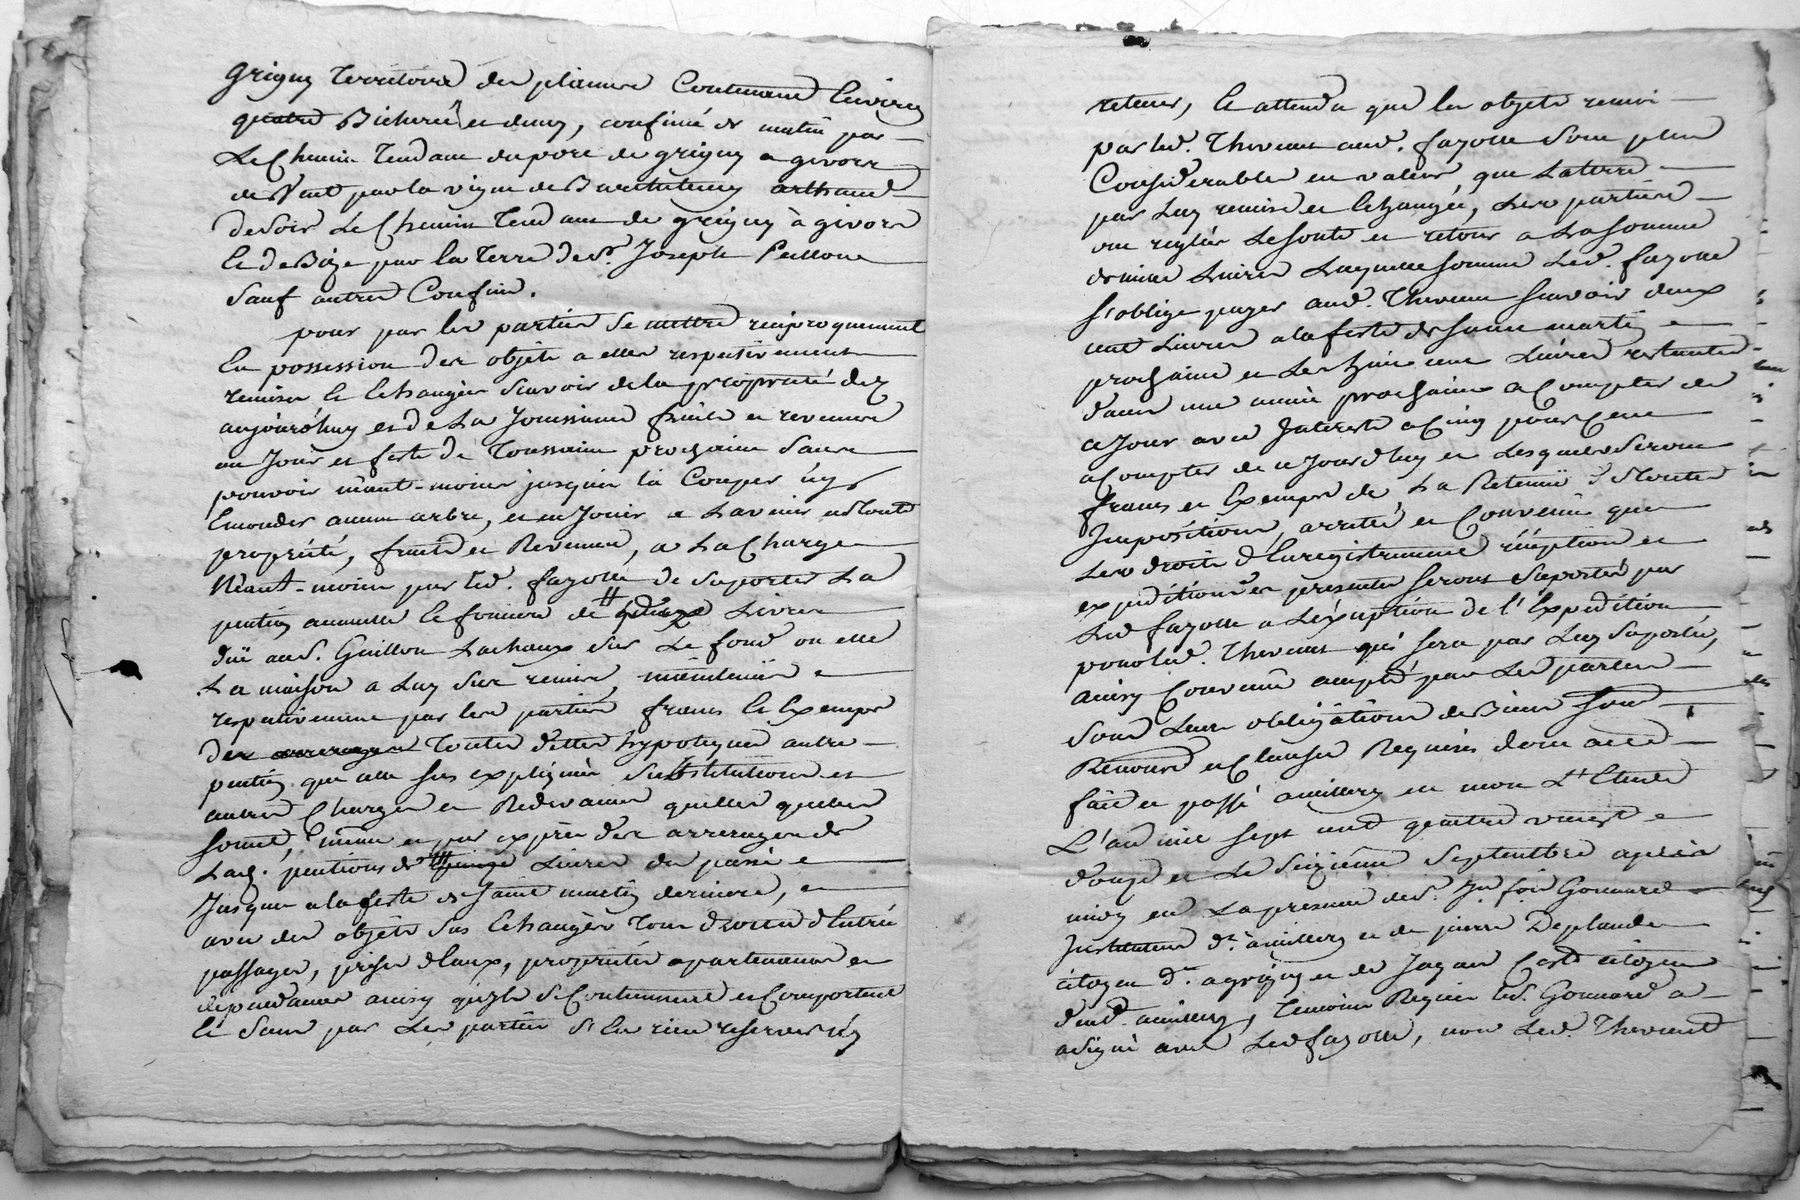 Grigny Territoire des plaines Contenant Environ
quatre Bicherée et demy, confiné de matin par
Le Chemin Tendant du port de grigny a givors
de Vent par la vigne de Barthelemy arthaud
de Soir Le Chemin Tendant de grigny à givors
Et de Bize par la Terre de Sr. Joseph
Sauf autres Confins.
pour par les parties Se mettre reciproquement
En possession des objets a elles respectivement
remises Et Echangées Scavoir de la propriété dez
aujourd'huy et de La Jouissance fruits et revenus
au Jour et feste de Toussaint prochaine Sans
pouvoir néant-moins jusques là Couper ny
Emonder aucun arbre, et en Jouir a L'avenir en Toute
propriété, fruits et Revenus, a La Charge
Néant-moins par led. fayolle de Suporter La
pention annuelle Et fonciere de Livres
düe au S. Guillon Lachaux Sur Le fond ou elle
La maison a Luy Sus remise, maintenüe
respectivement par les parties francs Et Exempts
des Toutes dettes hypoteques autre
pention que celle Sus expliquée Substitutions et
autres Charges et Redevances quelles quelles
Soient, même et par exprès des arrerages de
Lad. pentions de Livres du passé
Jusques a la feste de Saint martin derniere, et
avec des objets Sus Echangés Tous droits d'Entrée
passages, prises d'Eaux, propriétés apartenances et
dependances ainsy qu'Ils Se Contiennent et Comportent
Et Sans par Les parties S'En rien reserver ny
retenir, Et attendu que les objets remis
par led. Thevenet aud. fayolle Sont plus
Considerables en valeur, que La terre
par Luy remise et Echangée, Les parties
ont reglées Le Soute et retour a La Somme
de mille Livres Laquelle Somme Led. fayolle
S'oblige payer aud. Thevenet Scavoir deux
cent Livres a la feste de Saint martin
prochaine et Les huit cent Livres restantes
dans une année prochaine a Compter de
ce Jour avec Interest a Cinq pour Cent
a Compter de ce Jourd'huy et Lesquels Seront
francs et Exempts de La Retenüe de toutes
Impositions, arreté et Convenû que
Les droits d'Enregistrement réception et
expeditions des presentes Seront Suportés par
Led fayolle a L'exception de l'Expedition
pour led. Thevenet qui Sera par Luy Suportée,
ainsy Convenû accepté par Les parties
Sous Leurs obligations de Biens Soum
Renonce et Clauses Requises dont acte
fait et passé a millery en mon Etude
L'an mil sept cent quatre vingt
douze et Le Seizieme Septembre après
midy en La presence de Sr. Jn. fois Gonnard
Instituteur dt. a millery et de pierre Deplaude
citoyen dt. a grigny et de citoyen
dud. millery, Temoins Requis led. Gonnard a
a Signé avec Led fayolle, non Led Thevenet